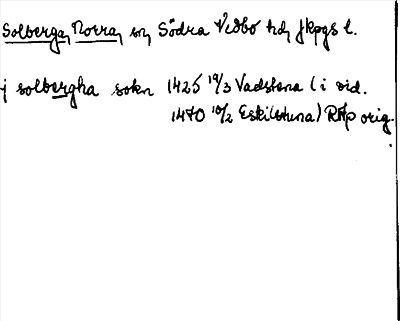 Solberga, Norra, sn, Södra Vedbo hd, Jkpgs l.
j solbergha sokn 1425 19/3 Vadstena (i vid.
1470 10/2 Eskilstuna) RAp orig.